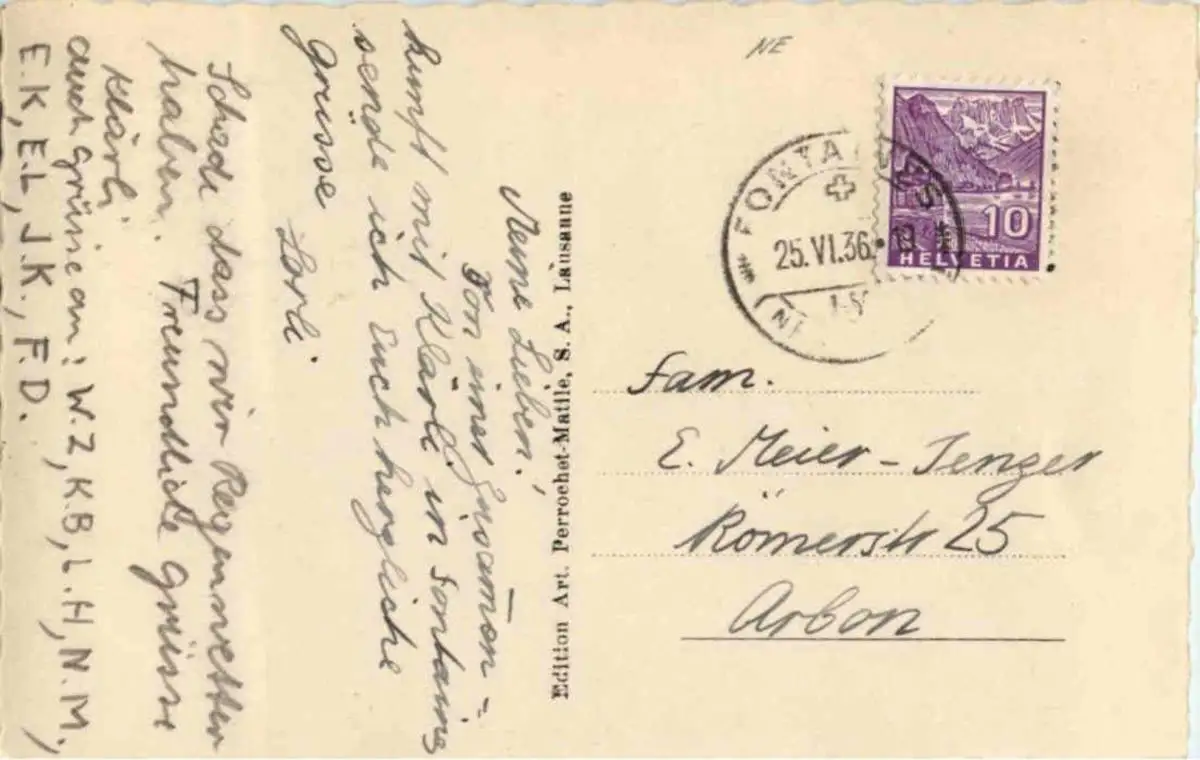 Meine Lieben!
Von einer Zusammen=
kunft mit Klärli in Fontaines
sende ich Euch herzliche
Grüsse
Lorli
Schade dass wir Regenwetter
haben. Freundliche Grüsse
Klärli
auch Grüsse an: W.Z, K.B, L.H, N.M.,
E.K, E.L, J.K., F.D.
Edition Art. Perrochet-Matile, S. A., Lausanne
NE
FONTAINES
25.VI.36.
10
HELVETIA
Fam.
E. Meier-Jenzer
Römerstr 25
Arbon